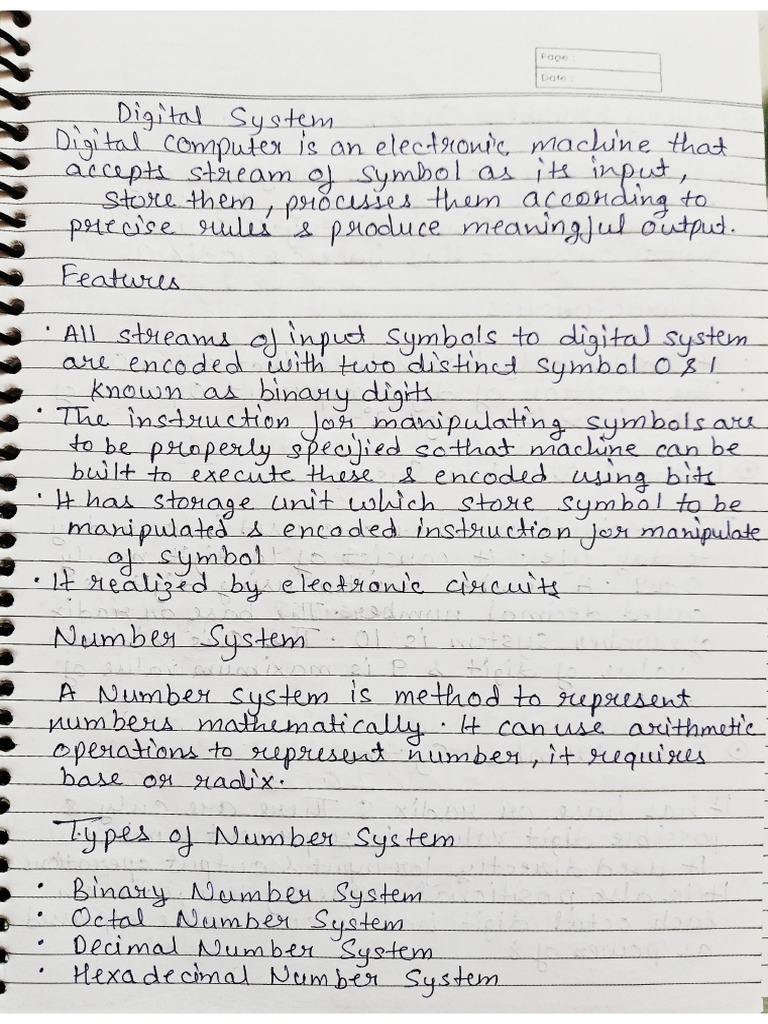 Page :
Date :
Digital System
Digital computer is an electronic machine that
accepts stream of symbol as its input,
store them, processes them according to
precise rules & produce meaningful output.
Features
• All streams of input symbols to digital system
are encoded with two distinct symbol 0 & 1
known as binary digits
• The instruction for manipulating symbols are
to be properly specified so that machine can be
built to execute these & encoded using bits
• It has storage unit which store symbol to be
manipulated & encoded instruction for manipulate
of symbol
• It realized by electronic circuits
Number System
A Number system is method to represent
numbers mathematically. It can use arithmetic
operations to represent number, it requires
base or radix.
Types of Number System
• Binary Number System
• Octal Number System
• Decimal Number System
• Hexadecimal Number System